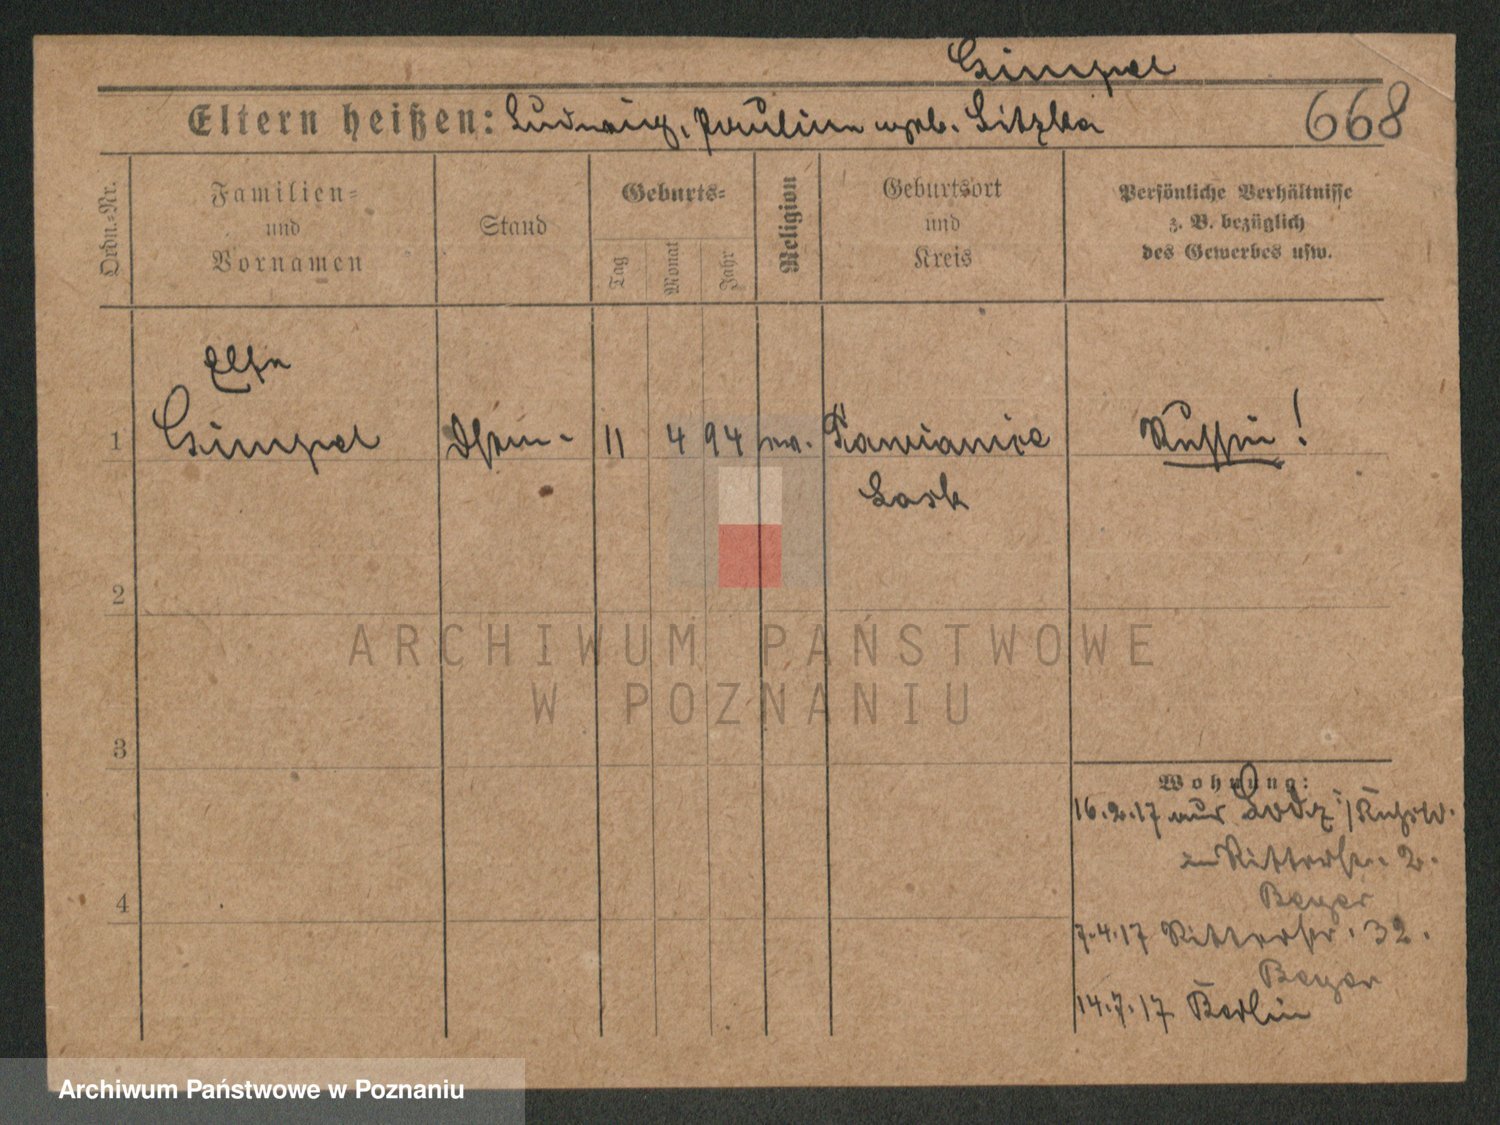 Gimpel
Eltern heißen: Ludwig, Pauline geb. Litzka
668
Ordn.-Nr.
Familien-
und
Vornamen
Stand
Geburts-
Tag
Monat
Jahr
Religion
Geburtsort
und
Kreis
Persönliche Verhältnisse
z. B. bezüglich
des Gewerbes usw.
Else
1 Gimpel 11 4 94 ev. Pawianice Russin!
Lask
2
ARCHIWUM PAŃSTWOWE
W POZNANIU
3
Wohnung:
16.2.17 aus Lodz
Ritterstr. 2.
Beyer
4
7.4.17 Ritterstr. 32.
Beyer
14.7.17 Berlin
Archiwum Państwowe w Poznaniu